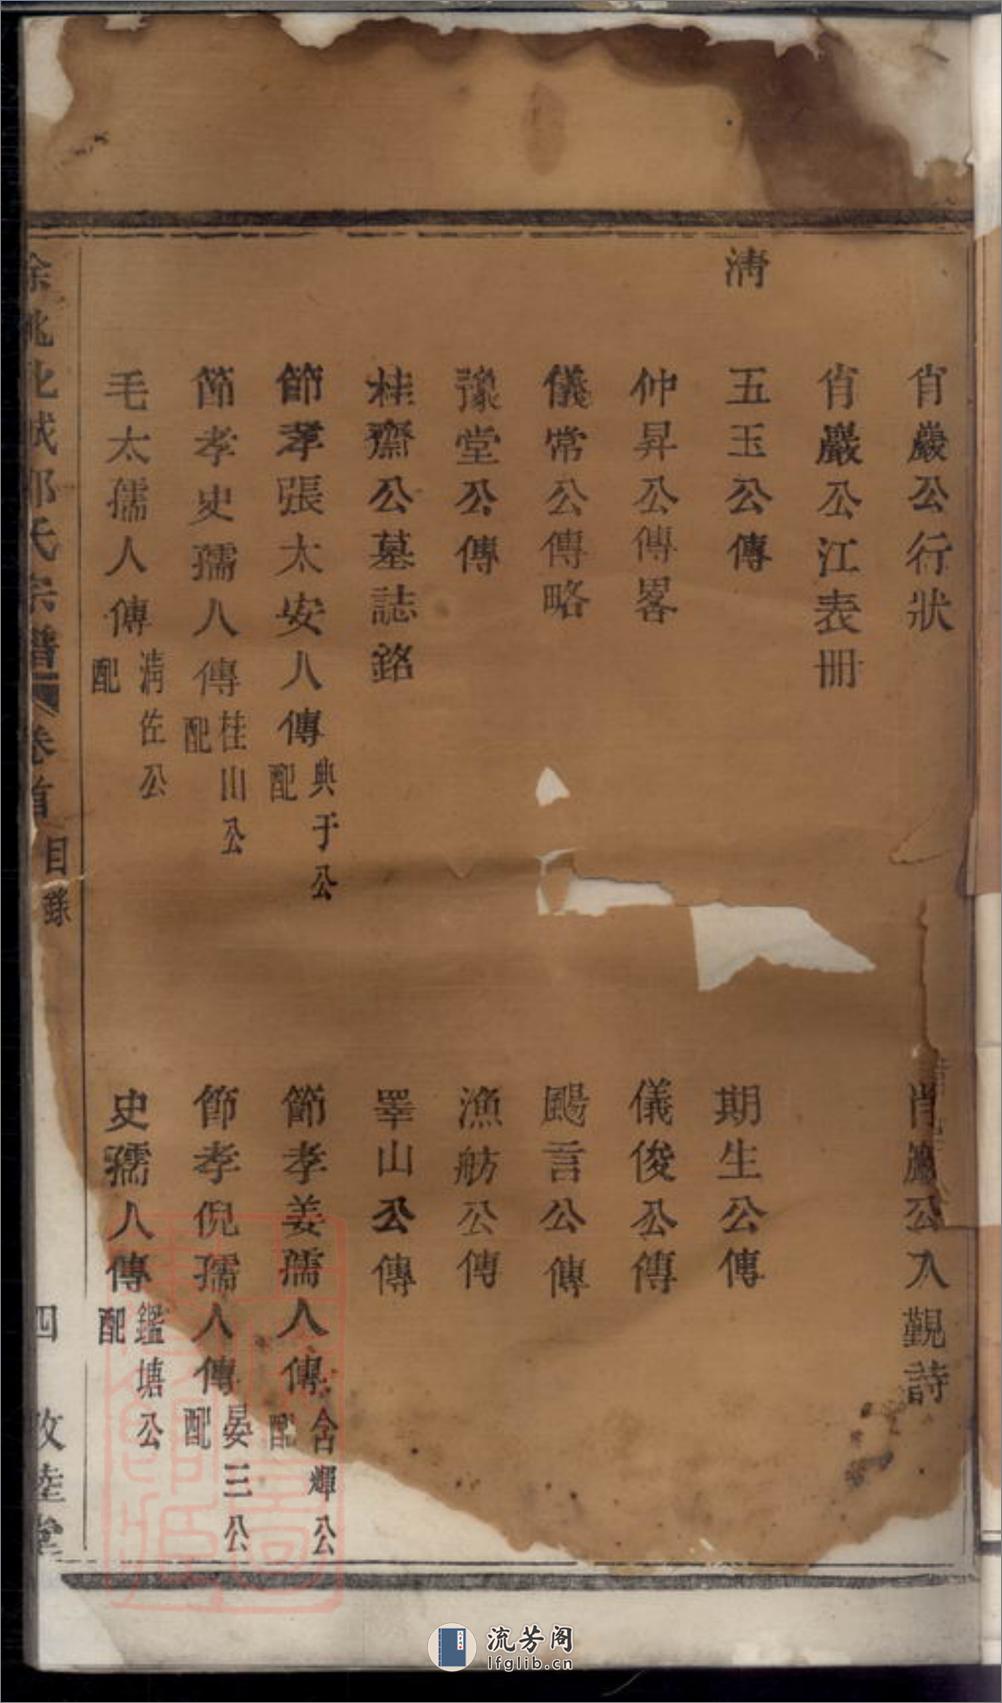 肖巖公行狀
肖巖公入覲詩
肖巖公江表冊
清
五玉公傳
期生公傳
仲昇公傳畧
儀俊公傳
儀常公傳略
颺言公傳
豫堂公傳
漁舫公傳
桂齋公墓誌銘
睪山公傳
節孝張太安人傳 典于公配
節孝姜孺人傳 含輝公配
節孝史孺人傳 桂山公配
節孝倪孺人傳 晏三公配
毛太孺人傳 清佐公配
史孺人傳 鑑塘公配
余姚 城邵氏宗譜 卷首 目錄 四 敦睦堂
流芳阁
lfglib.cn